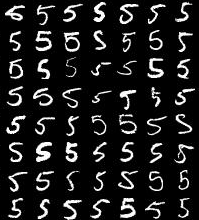 5 5 5 5 5 5 5
5 5 5 5 5 5 5
5 5 5 5 5 5 5
5 5 5 5 5 5 5
5 5 5 5 5 5 5
5 5 5 5 5 5 5
5 5 5 5 5 5 5
5 5 5 5 5 5 5